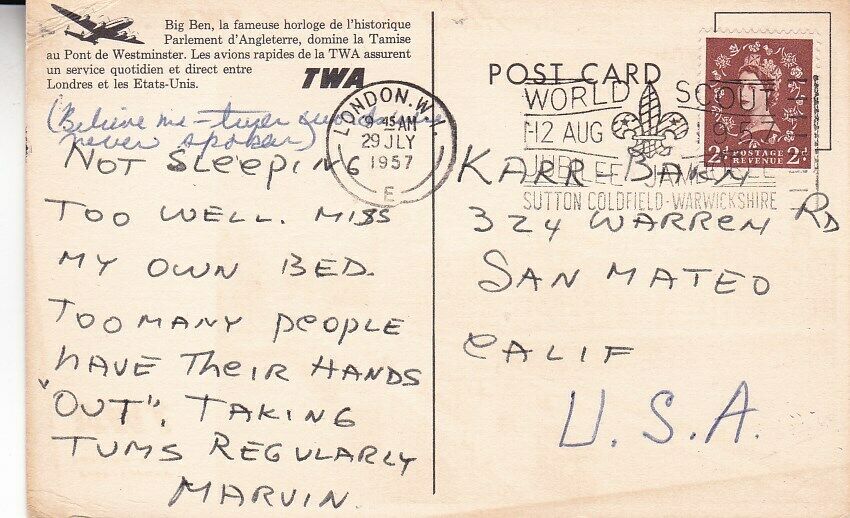 Big Ben, la fameuse horloge de l'historique
Parlement d'Angleterre, domine la Tamise
au Pont de Westminster. Les avions rapides de la TWA assurent
un service quotidien et direct entre
Londres et les Etats-Unis.
TWA
(Believe me - truer
never spoken)
NOT SLeePING
TOO WELL. MISS
MY OWN BED.
TOO MANY PeOPLE
HAVE THeIR HANDS
"OUT". TAKING
TUMS REGULARLY
MARVIN.
LONDON. W.
9 45 AM
29 JLY
1957
E
POST CARD
WORLD SCOUT
1-12 AUG 1957
JUBILEE JAMBOREE
SUTTON COLDFIELD · WARWICKSHIRE
2D POSTAGE REVENUE 2D
KARR BARY
324 WARREN RD
SAN MATEO
CALIF
U.S.A.